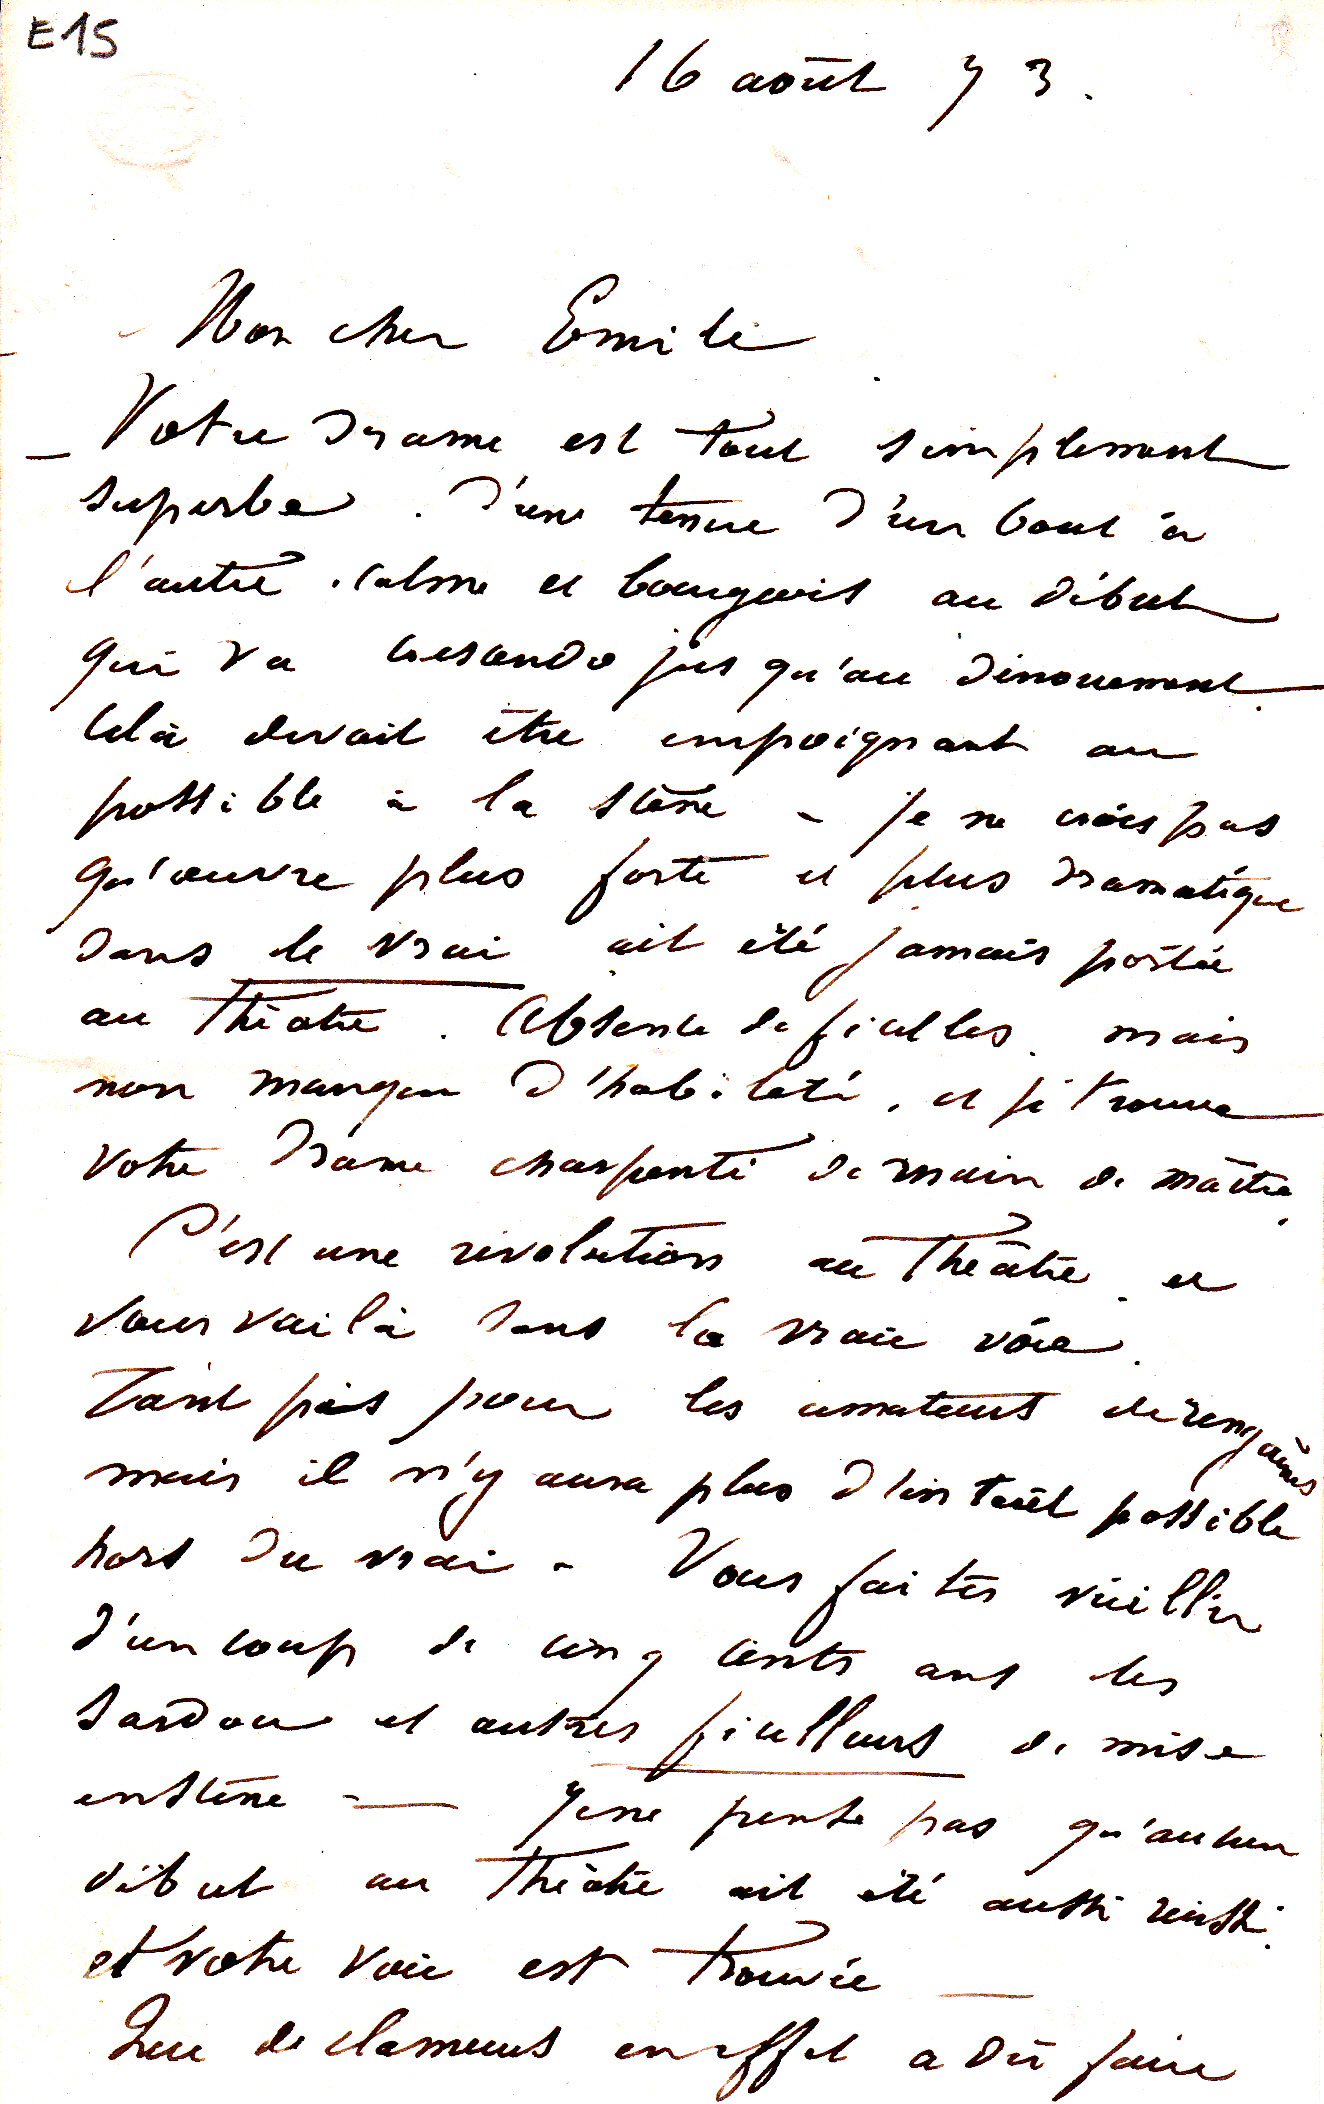 E15
16 août 73.
Mon cher Emile
Votre drame est tout simplement
superbe. d'une tenue d'un bout à
l'autre. calme et bourgeois au début
qui va crescendo jusqu'au dénouement.
Celà devait être empoignant au
possible à la scène - je ne crois pas
qu'œuvre plus forte et plus dramatique
dans le vrai ait été jamais portée
au théâtre. Absence de ficelles. mais
non manque d'habileté, et je trouve
votre drame charpenté de main de maître.
C'est une révolution au Théâtre. et
vous voilà dans la vraie voie.
Tant pis pour les amateurs de rengaînes
mais il n'y aura plus d'intérêt possible
hors du vrai - Vous faites vieillir
d'un coup de cinq cents ans les
Sardou et autres ficelleurs de mise
en scène - — Je ne pense pas qu'aucun
début au Théâtre ait été aussi réussi.
et votre voie est trouvée —
Que de clameurs en effet a dû faire